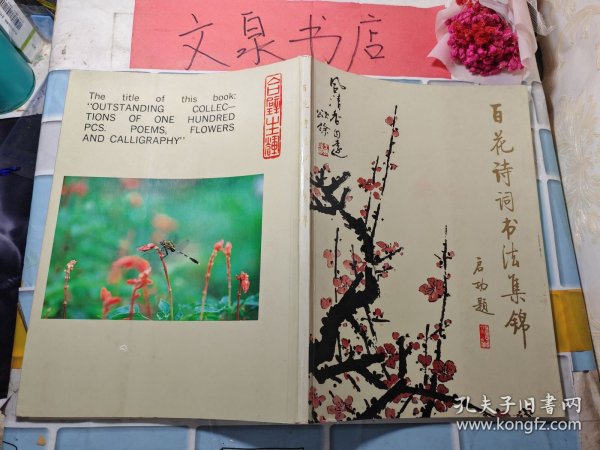 文泉书店
The title of this book:
"OUTSTANDING COLLEC—
TIONS OF ONE HUNDRED
PCS. POEMS, FLOWERS
AND CALLIGRAPHY"
百花诗词书法集锦
启功题
孔夫子旧书网
www.kongfz.com